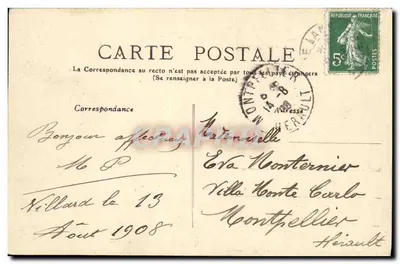 CARTE POSTALE
La Correspondance au recto n'est pas acceptée par tous les pays étrangers
(Se renseigner à la Poste)
RÉPUBLIQUE FRANÇAISE
5c
POSTES
MONTPELLIER
14 -8
08
HERAULT
Correspondance
Adresse
Bonjour affectueux
M P
Villard le 13
Août 1908
Mademoiselle
Eva Monternier
Villa Monte Carlo
Montpellier
Hérault